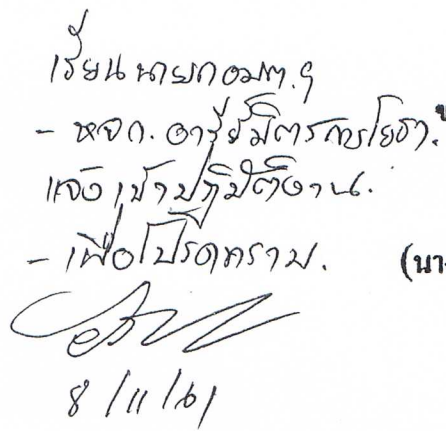 เรียน นายก อบต.ฯ
- หจก. อารีย์มิตรการโยธา.
แจ้งเข้าปฏิบัติงาน.
- เพื่อโปรดทราบ.
(นา
8/11/61